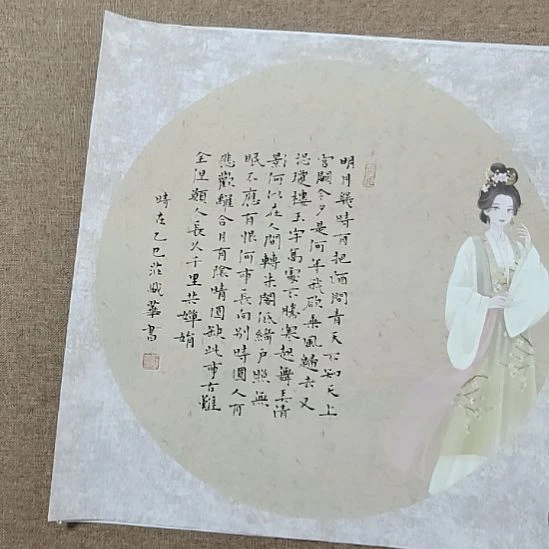 明月幾時有把酒問青天不知天上
宮闕今夕是何年我欲乘風歸去又
恐瓊樓玉宇高處不勝寒起舞弄清
影何似在人間轉朱閣低綺戶照無
眠不應有恨何事長向別時圓人有
悲歡離合月有陰晴圓缺此事古難
全但願人長久千里共嬋娟
時在乙巳華書